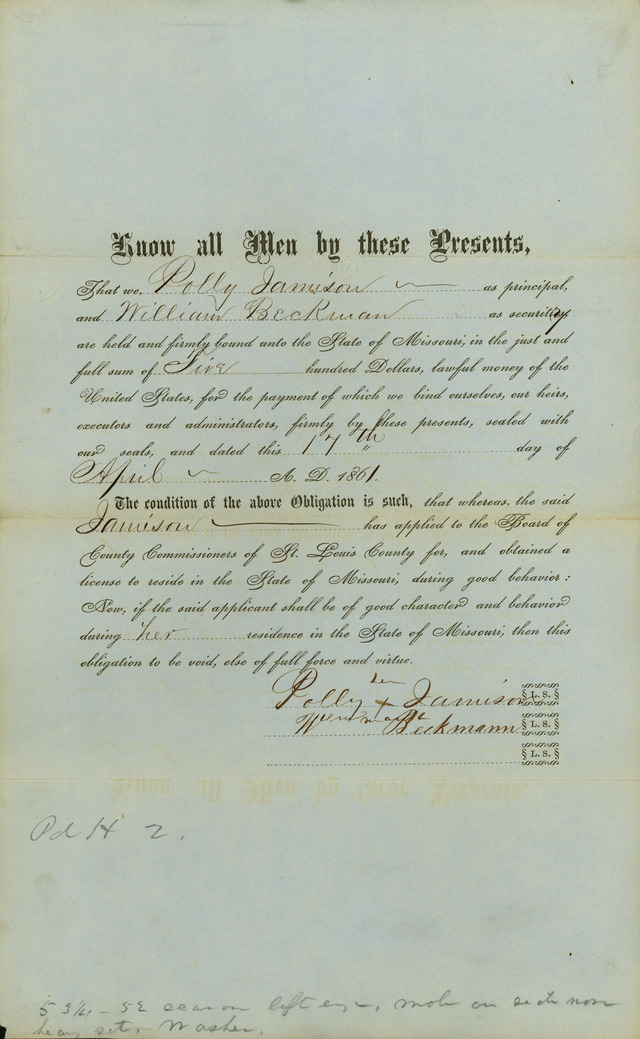 Know all Men by these Presents,
That we, Polly Jamison as principal,
and William Beckman as security
are held and firmly bound unto the State of Missouri, in the just and
full sum of Five hundred Dollars, lawful money of the
United States, for the payment of which we bind ourselves, our heirs,
executors and administrators, firmly by these presents, sealed with
our seals, and dated this 17th day of
April A. D. 1861.
The condition of the above Obligation is such, that whereas, the said
Jamison has applied to the Board of
County Commissioners of St. Louis County for, and obtained a
license to reside in the State of Missouri, during good behavior:
Now, if the said applicant shall be of good character and behavior
during her residence in the State of Missouri, then this
obligation to be void, else of full force and virtue.
her
Polly x Jamison § L. S. §
mark
Beckmann § L. S. §
§ L. S. §
Know all Men by these Presents,
Pd H 2.
5.3¼ - 52 scar on left eye, mole on side nose
heavy set. Washer.